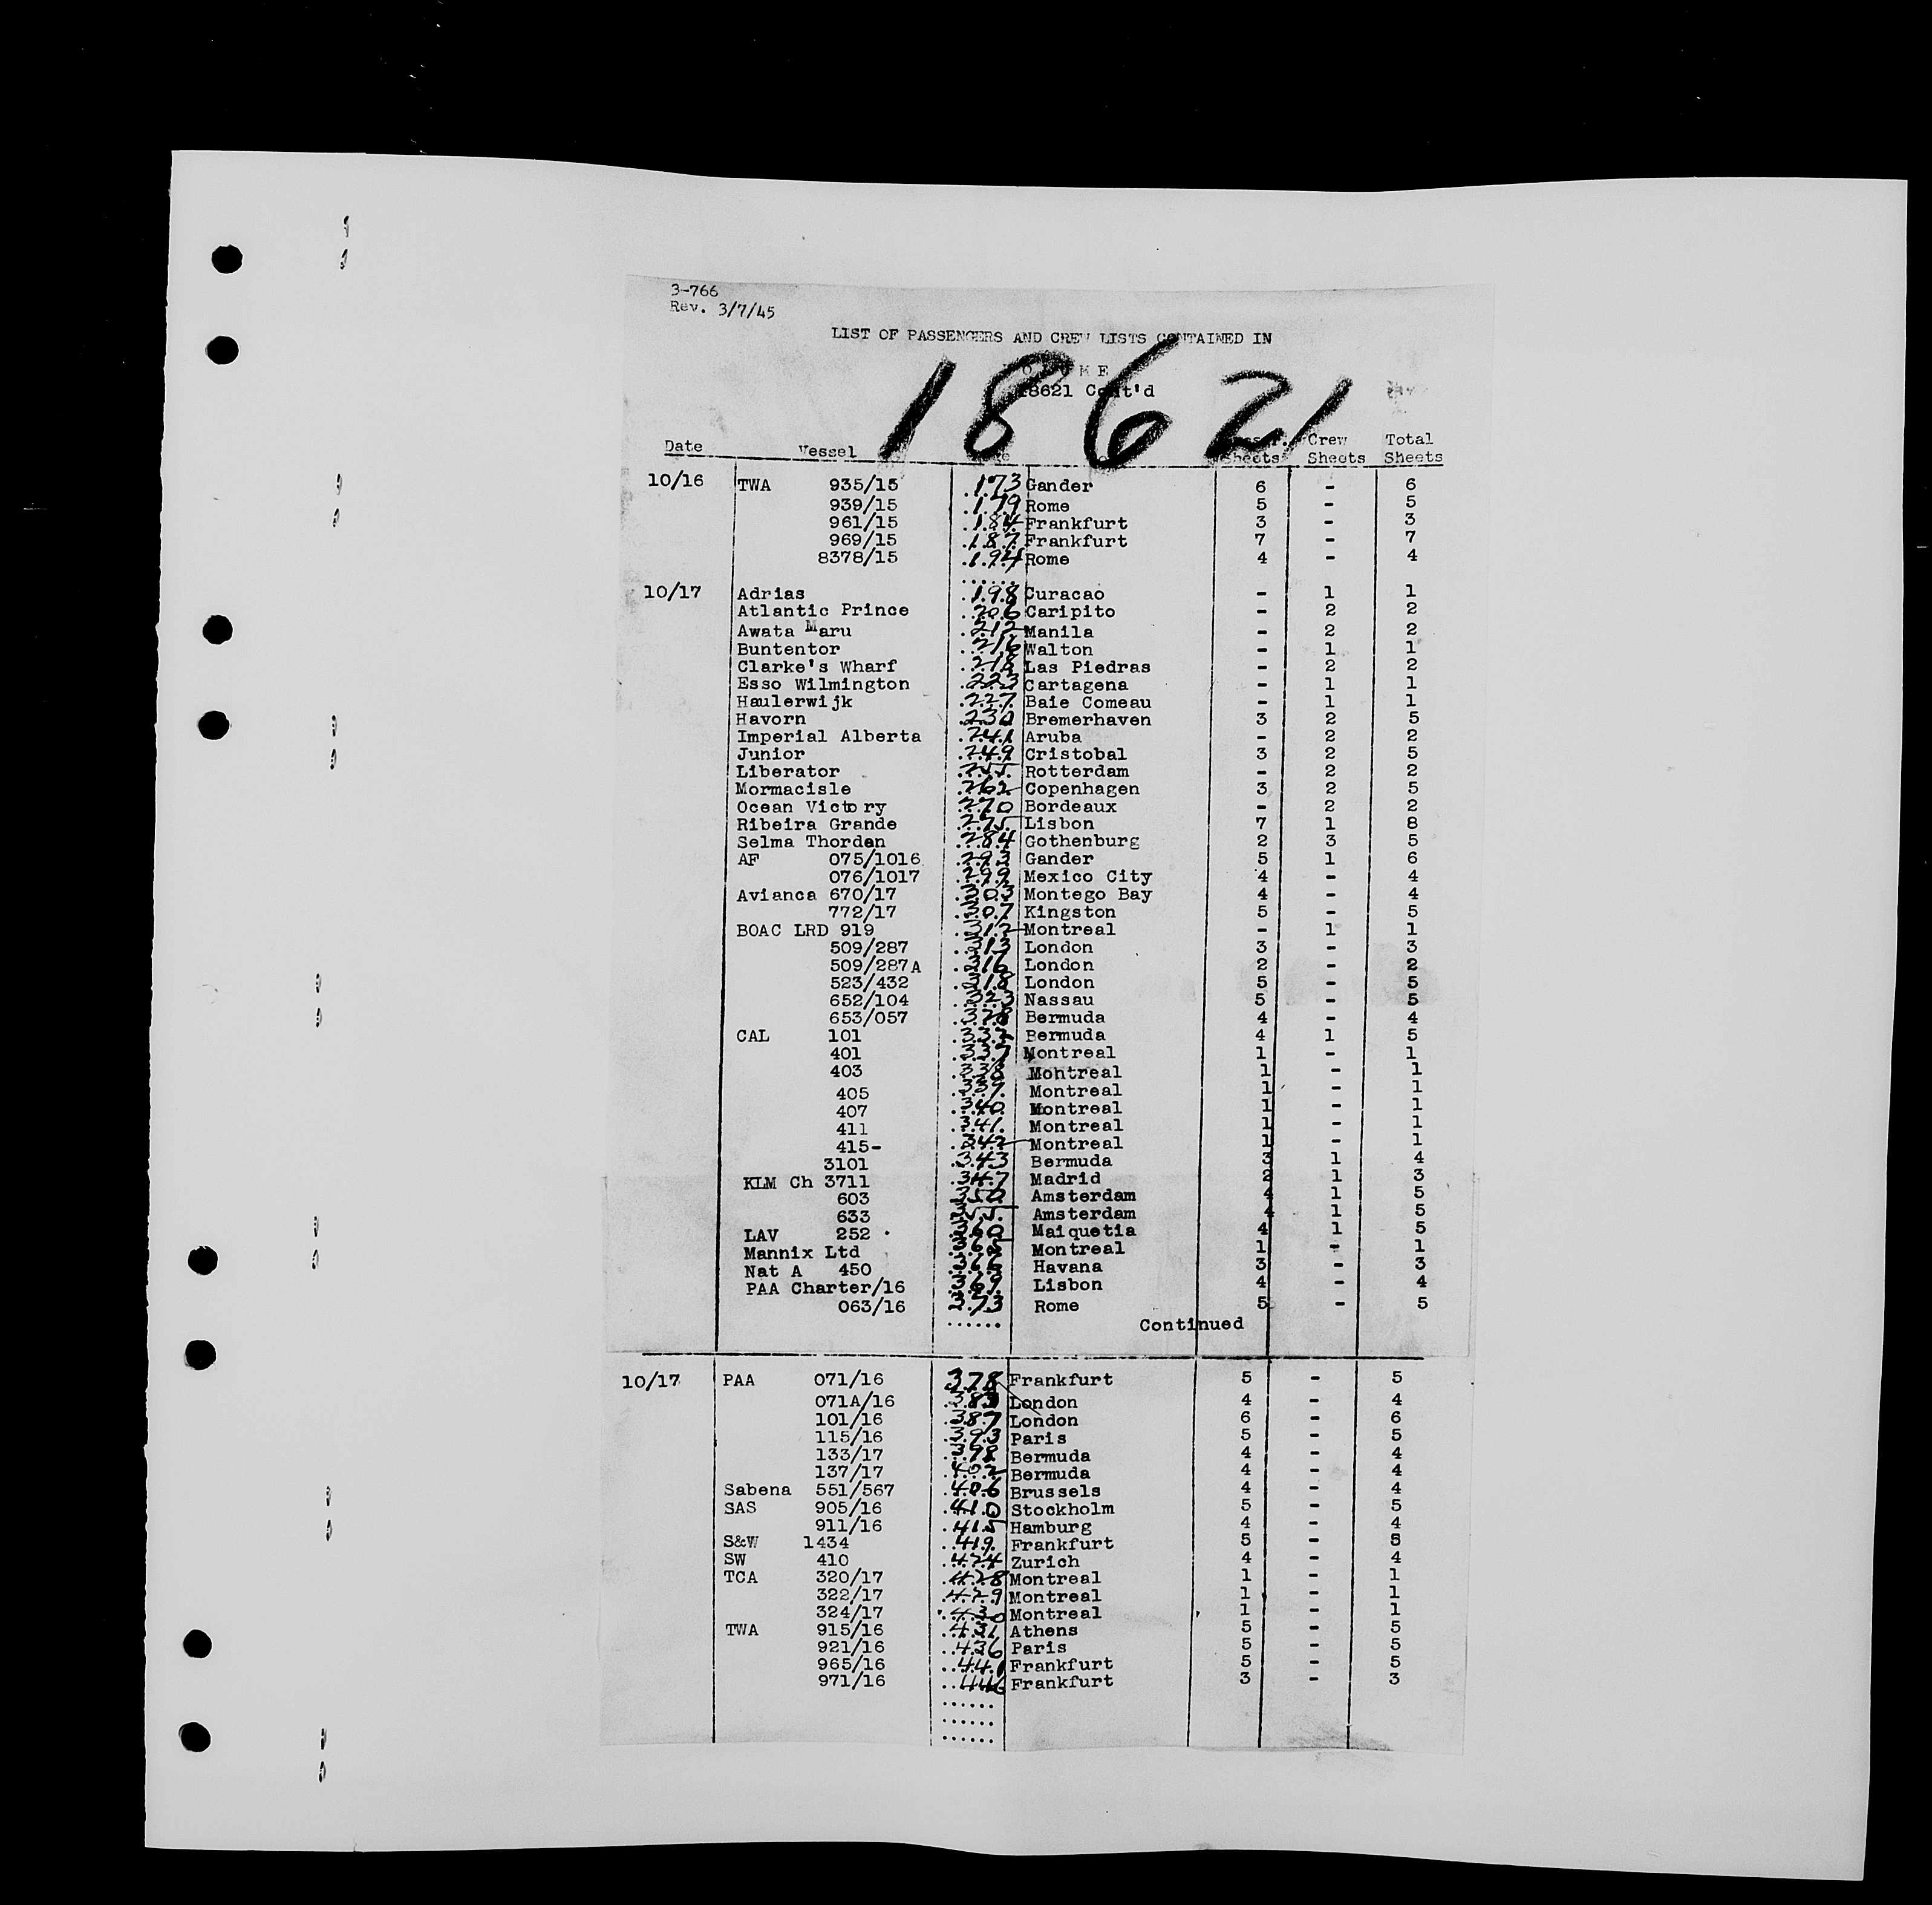 3-766
Rev. 3/7/45
LIST OF PASSENGERS AND CREW LISTS CONTAINED IN
18621
18621 Cont'd
Date Vessel Sheets Crew Sheets Total Sheets
10/16 TWA 935/15 173 Gander 6 - 6
939/15 179 Rome 5 - 5
961/15 184 Frankfurt 3 - 3
969/15 187 Frankfurt 7 - 7
8378/15 194 Rome 4 - 4
10/17 Adrias 198 Curacao - 1 1
Atlantic Prince 206 Caripito - 2 2
Awata Maru 212 Manila - 2 2
Buntentor 216 Walton - 1 1
Clarke's Wharf 218 Las Piedras - 2 2
Esso Wilmington 223 Cartagena - 1 1
Haulerwijk 227 Baie Comeau - 1 1
Havorn 230 Bremerhaven 3 2 5
Imperial Alberta 241 Aruba - 2 2
Junior 249 Cristobal 3 2 5
Liberator 255 Rotterdam - 2 2
Mormacisle 262 Copenhagen 3 2 5
Ocean Victory 270 Bordeaux - 2 2
Ribeira Grande 275 Lisbon 7 1 8
Selma Thorden 284 Gothenburg 2 3 5
AF 075/1016 293 Gander 5 1 6
076/1017 299 Mexico City 4 - 4
Avianca 670/17 303 Montego Bay 4 - 4
772/17 307 Kingston 5 - 5
BOAC LRD 919 312 Montreal - 1 1
509/287 313 London 3 - 3
509/287A 316 London 2 - 2
523/432 318 London 5 - 5
652/104 323 Nassau 5 - 5
653/057 328 Bermuda 4 - 4
CAL 101 332 Bermuda 4 1 5
401 337 Montreal 1 - 1
403 338 Montreal 1 - 1
405 339 Montreal 1 - 1
407 340 Montreal 1 - 1
411 341 Montreal 1 - 1
415- 342 Montreal 1 - 1
3101 343 Bermuda 3 1 4
KLM Ch 3711 347 Madrid 2 1 3
603 350 Amsterdam 4 1 5
633 355 Amsterdam 4 1 5
LAV 252 360 Maiquetia 4 1 5
Mannix Ltd 365 Montreal 1 - 1
Nat A 450 366 Havana 3 - 3
PAA Charter/16 369 Lisbon 4 - 4
063/16 373 Rome 5 - 5
Continued
10/17 PAA 071/16 378 Frankfurt 5 - 5
071A/16 383 London 4 - 4
101/16 387 London 6 - 6
115/16 393 Paris 5 - 5
133/17 398 Bermuda 4 - 4
137/17 402 Bermuda 4 - 4
Sabena 551/567 406 Brussels 4 - 4
SAS 905/16 410 Stockholm 5 - 5
911/16 415 Hamburg 4 - 4
S&W 1434 419 Frankfurt 5 - 5
SW 410 424 Zurich 4 - 4
TCA 320/17 428 Montreal 1 - 1
322/17 429 Montreal 1 - 1
324/17 430 Montreal 1 - 1
TWA 915/16 431 Athens 5 - 5
921/16 436 Paris 5 - 5
965/16 441 Frankfurt 5 - 5
971/16 446 Frankfurt 3 - 3